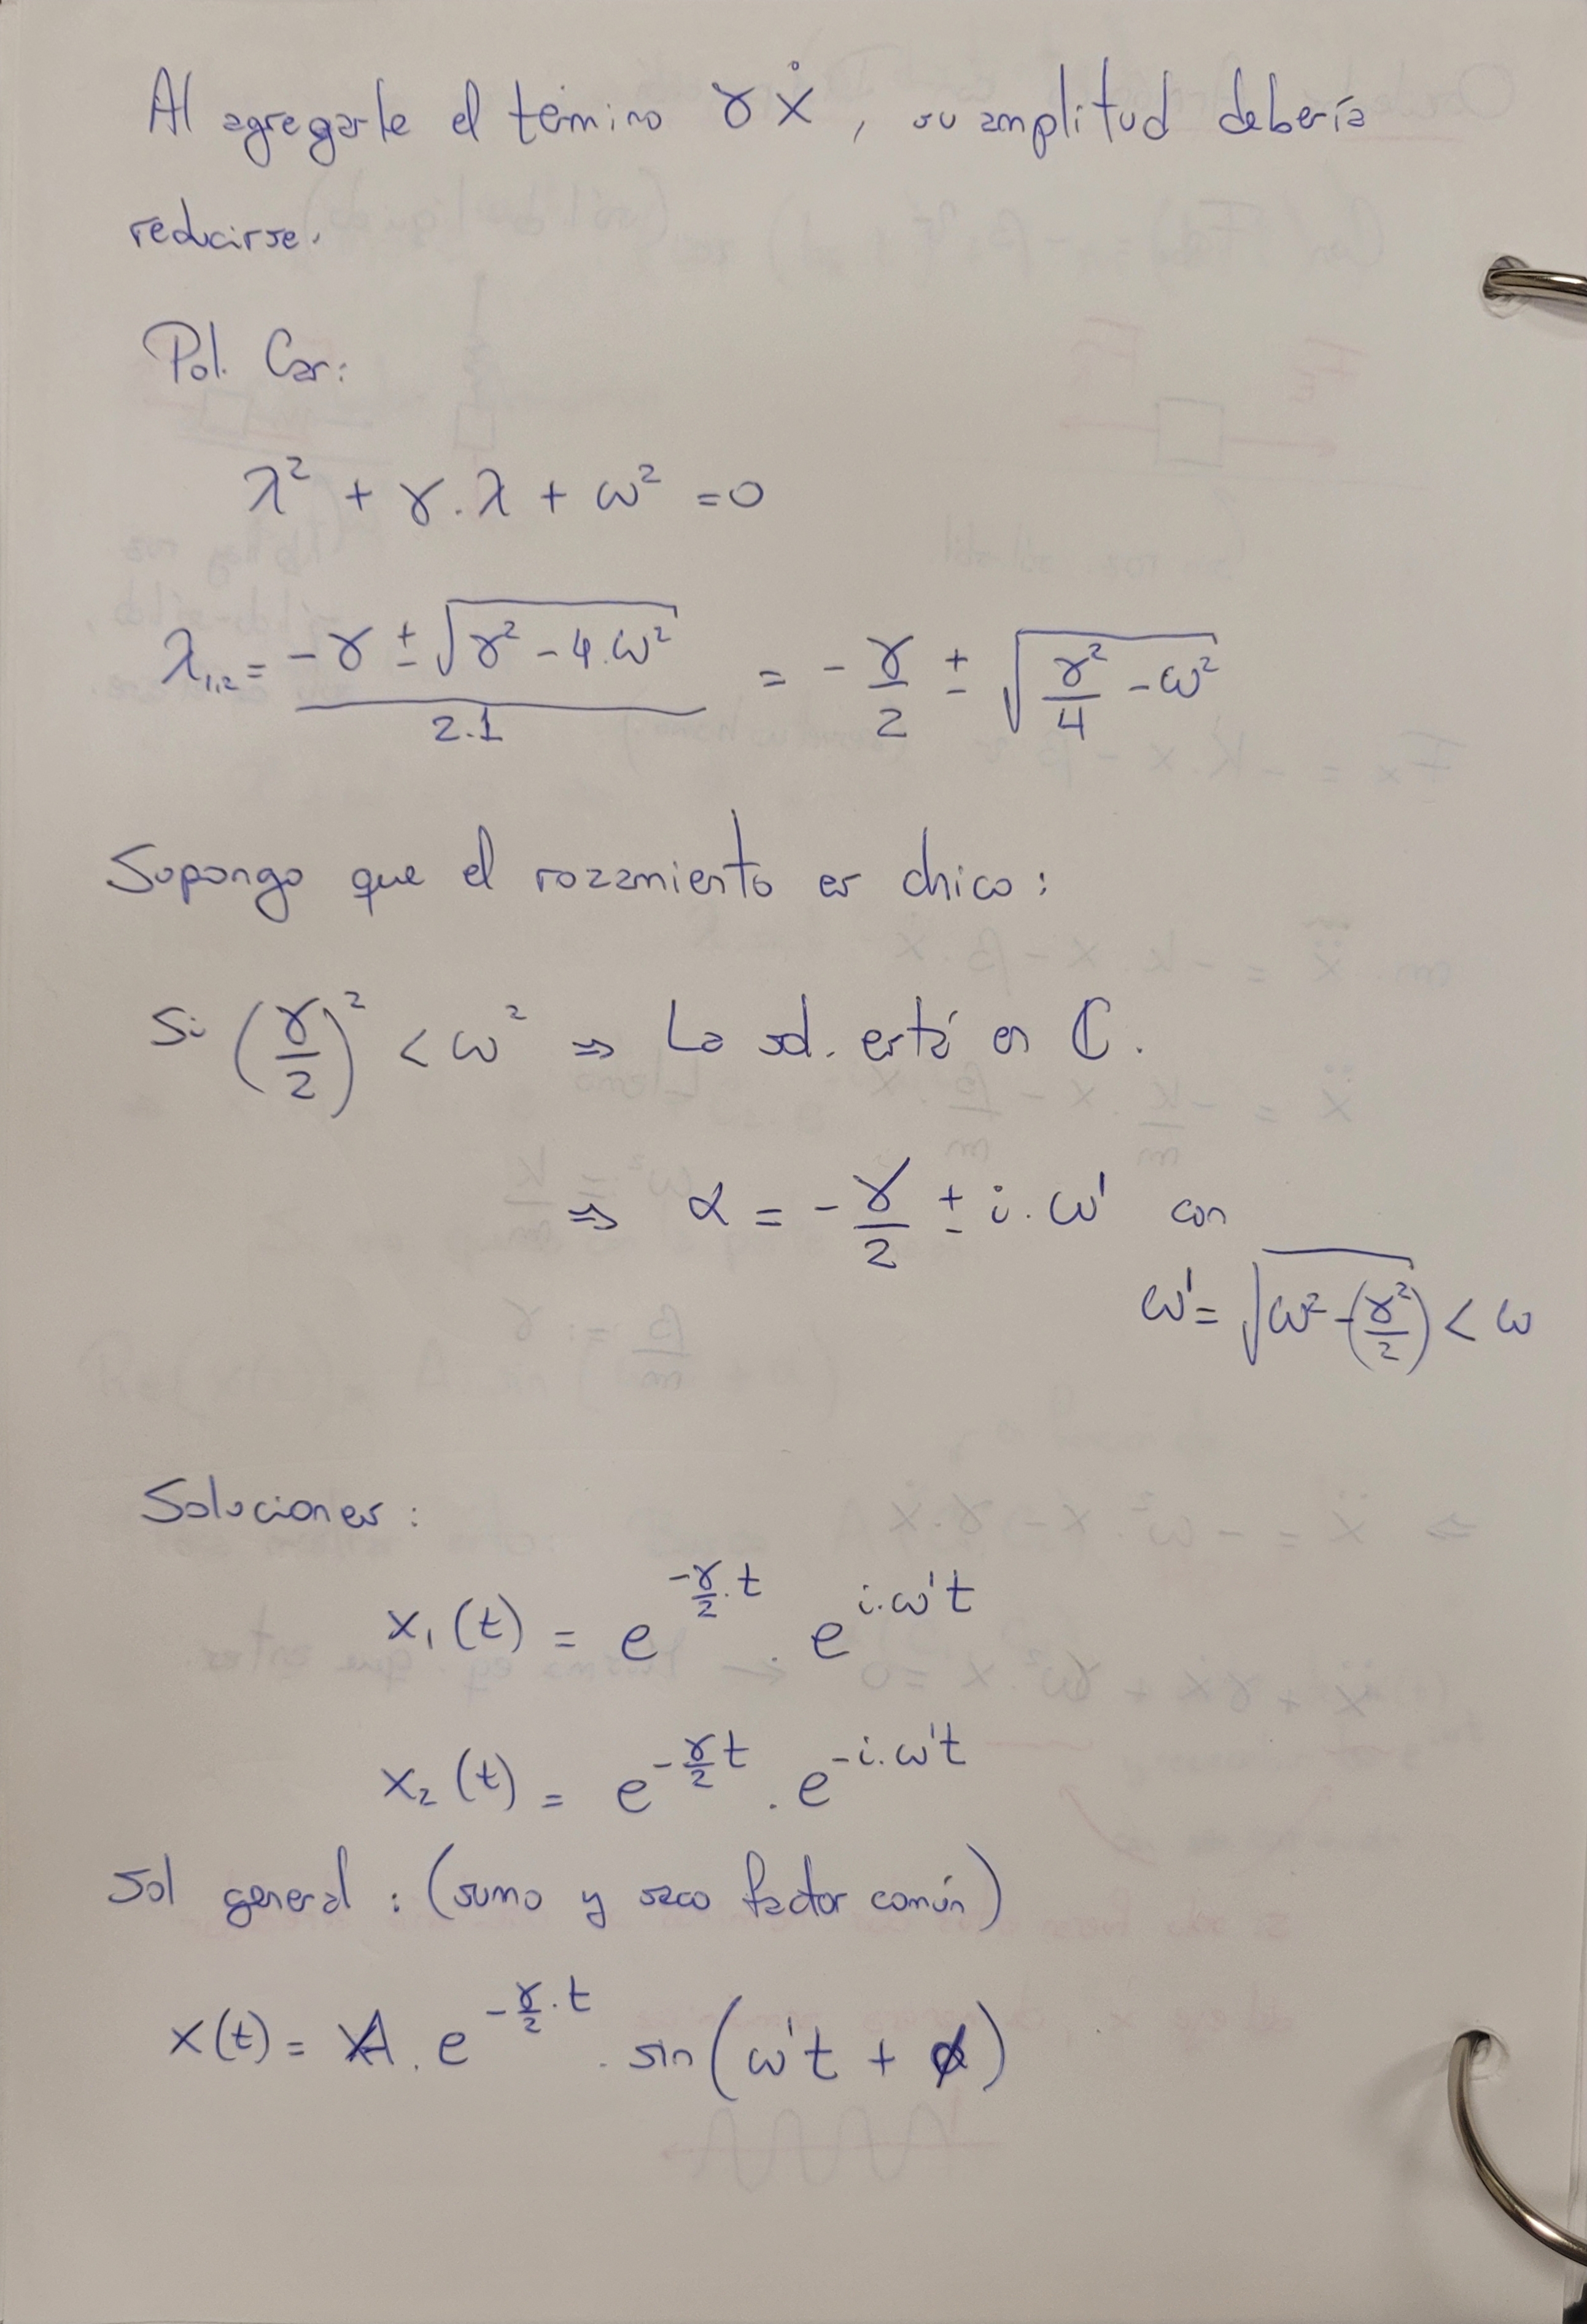 Al agregarle el témino γẋ, su amplitud debería
reducirse.
Pol. Car:
λ² + γ.λ + ω² = 0
λ₁,₂ = (-γ ± √(γ² - 4.ω²)) / 2.1 = -γ/2 ± √(γ²/4 - ω²)
Supongo que el rozamiento es chico:
Si (γ/2)² < ω² ⇒ La sol. está en ℂ.
⇒ α = -γ/2 ± i.ω' con
ω' = √(ω² - (γ²/2)) < ω
Soluciones:
x₁(t) = e^(-γ/2.t) . e^(i.ω't)
x₂(t) = e^(-γ/2 t) . e^(-i.ω't)
Sol general: (sumo y saco factor común)
x(t) = A . e^(-γ/2.t) . sin(ω't + φ)